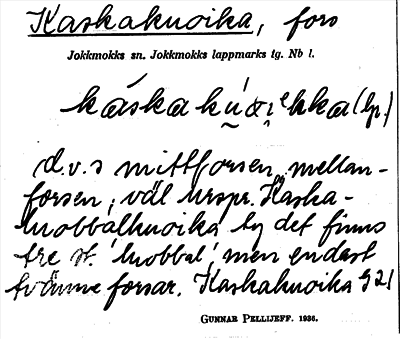 Kaskakuoika, fors
Jokkmokks sn. Jokkmokks lappmarks tg. Nb l.
(lp.)
d.v.s mittforsen, mellan-
forsen, väl urspr. Kaska-
luobbalkuoika ty det finns
tre st. 'luobbal' men endast
tvänne forsar. Kaskakuoika G21
GUNNAR PELLIJEFF. 1936.